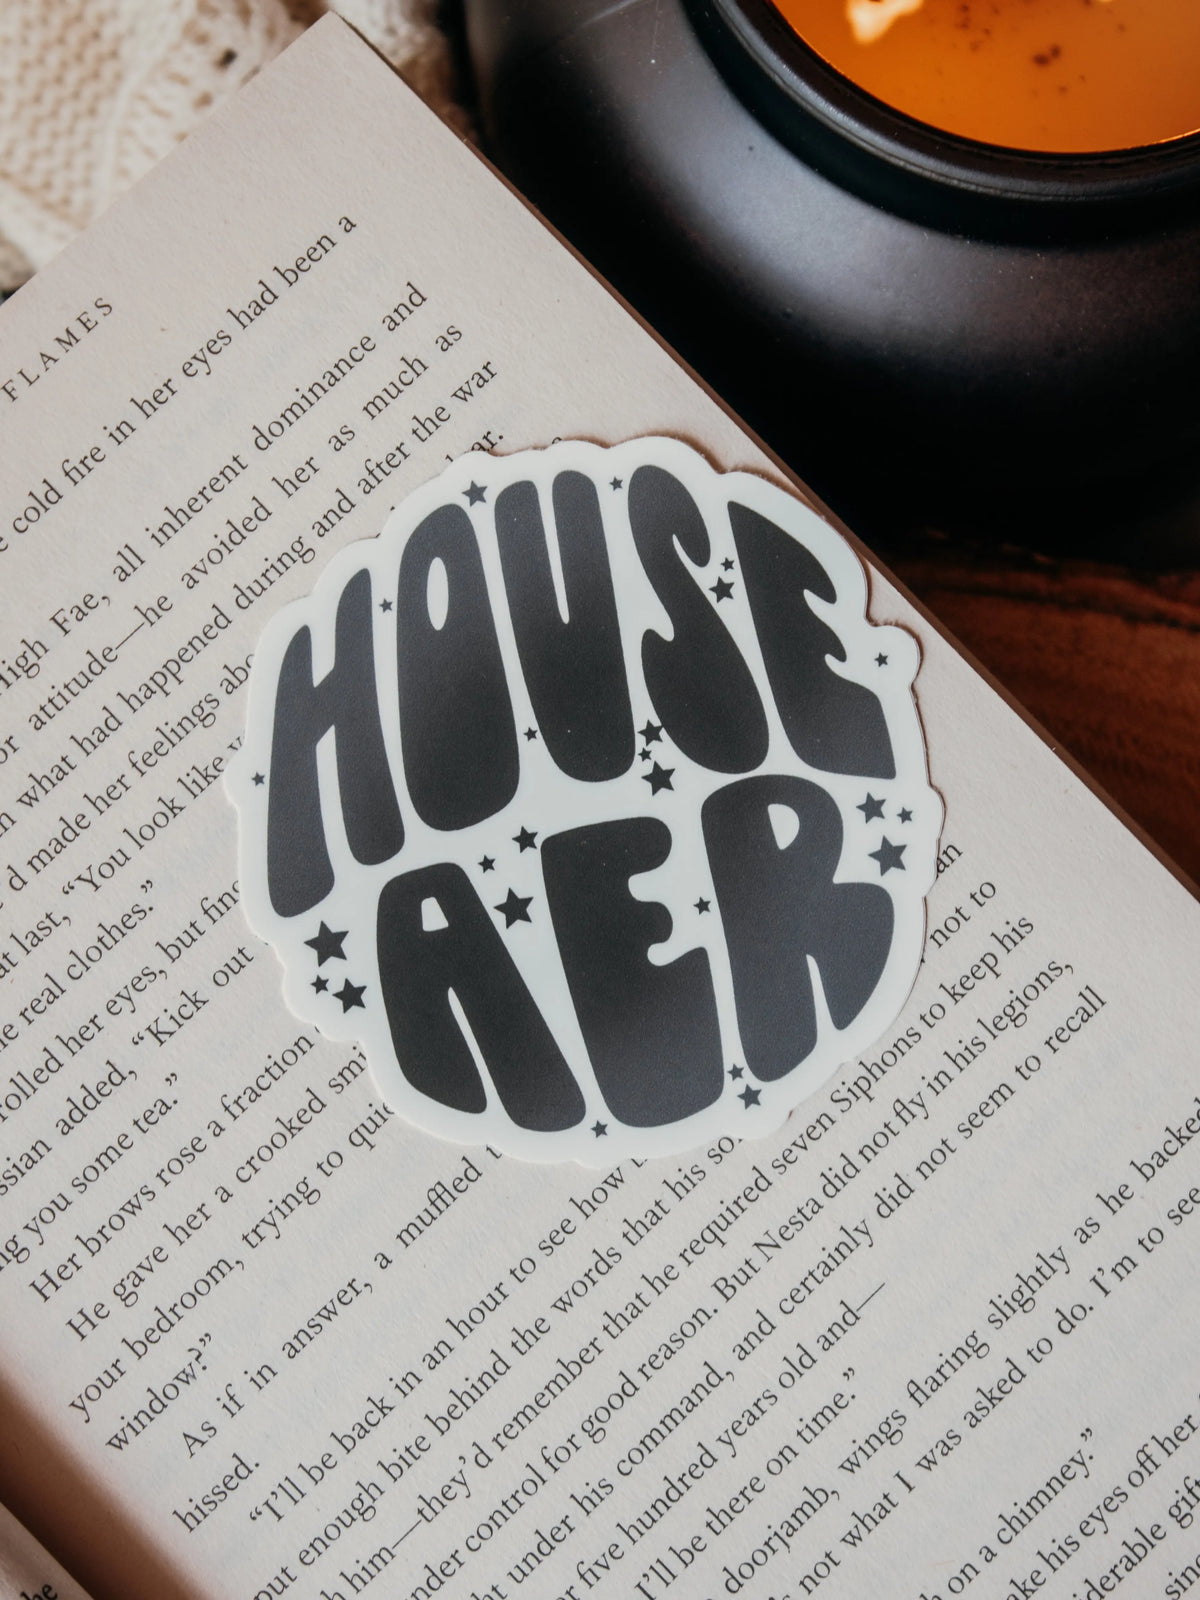 FLAMES
cold fire in her eyes had been a
High Fae, all inherent dominance and
attitude—he avoided her as much as
what had happened during and after the war
'd made her feelings
at last, "You look like
real clothes."
rolled her eyes, but
added, "Kick out
you some tea."
Her brows rose a fraction
He gave her a crooked
your bedroom, trying to
window?"
As if in answer, a muffled
hissed.
"I'll be back in an hour to see how
put enough bite behind the words that his
him—they'd remember that he required seven Siphons to keep his
under control for good reason. But Nesta did not fly in his legions,
under his command, and certainly did not seem to recall
five hundred years old and—
I'll be there on time."
doorjamb, wings flaring slightly as he backed
not what I was asked to do. I'm to see
on a chimney."
his eyes off her
not to
HOUSE
AER